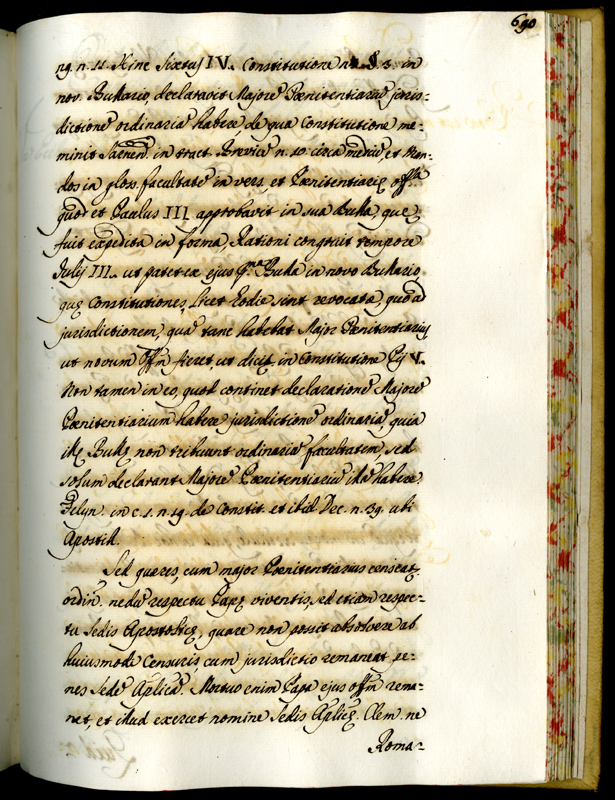 690
ng. n. 11. Hinc Sixtus IV. Constitutione n. 3. in
nov. Bullario, declaravit Majorẽ Pœnitentiariũ juris-
dictionẽ ordinariã habere, de qua Constitutione me-
minit in tract. Brevicũ n. 10. circa mediũ, et
dos in gloss. facultatẽ in vers. et Pœnitentiarię off.
quod et Paulus III approbavit in sua Bulla, quę
fuit expedita in forma, Rationi congruit tempore
Julij III. ut patet ex ejus pma Bulla in novo Bullario,
quę Constitutiones, licet hodie sint revocatę, quo ad
jurisdictionem, quã tunc habebat Major Pœnitentiarius
ut novum offm fieret, ut dicit in Constitutione Pij V.
Non tamen in eo, quod continet declarationẽ Majorẽ
Pœnitentiarium habere jurisdictionẽ ordinariã, quia
illę Bullę non tribuunt ordinariã facultatem, sed
solum declarant Majorẽ Pœnitentiariũ illã habere,
Felyn. in c. 1. n. 19. de Constit. et ibid. Dec. n. 39. ubi
Apostill.
Sed quęres, cum major Pœnitentiarius censeat
ordin. nedũ respectu Papę viventis, sed etiam respec-
tu Sedis Apostolicę, quare non possit absolvere ab
huiusmodi Censuris cum jurisdictio remaneat pe-
nes Sedẽ Aplicã. Mortuo enim Papa ejus offm rema-
net, et illud exercet nomine Sedis Aplicę. Clem. ne
Roma-